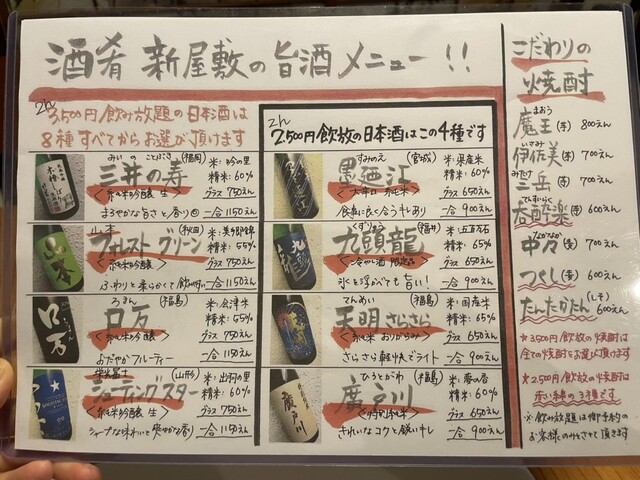 酒肴 新屋敷の旨酒メニュー!!
2h
3500円飲み放題の日本酒は
8種すべてからお選び頂けます
みいのことぶき
三井の寿
(福岡)
<純米吟醸 生>
まろやかな旨さと香り
米:吟の里
精米:60%
グラス 750えん
一合 1150えん
山本
フォレストグリーン
(秋田)
<純米吟醸>
ふわりと柔らかくて飲み
米:美郷錦
精米:55%
グラス 750えん
一合 1150えん
ろまん
ロ万
(福島)
<純米吟醸>
おだやかフルーティー
米:会津米
精米:55%
グラス 750えん
一合 1150えん
栄光冨士
シューティングスター
(山形)
<純米吟醸 生>
シャープな味わいと爽やかな香り
米:出羽の里
精米:60%
グラス 750えん
一合 1150えん
2h
2500円飲放の日本酒はこの4種です
すみのえ
墨廼江
(宮城)
<大辛口 純米>
食事に良く合うキレあり
米:県産米
精米:60%
グラス 650えん
一合 900えん
くずりゅう
九頭龍
(福井)
<冷やし酒 限定品>
氷を浮かべても旨い!
米:五百万石
精米:65%
グラス 650えん
一合 900えん
てんめい
天明さらさら
(福島)
<純米 おりがらみ>
さらさら軽快でライト
米:国産米
精米:65%
グラス 650えん
一合 900えん
ひろとがわ
廣戸川
(福島)
<特別純米>
きれいなコクと鋭いキレ
米:夢の香
精米:60%
グラス 650えん
一合 900えん
こだわりの
焼酎
まおう
魔王(芋) 800えん
いさみ
伊佐美(芋) 700えん
みたけ
三岳(芋) 600えん
てんすいらく
呑酔楽(芋) 600えん
なかなか
中々(麦) 700えん
つくし(麦) 600えん
たんたかたん(しそ) 600えん
★3500円飲放の焼酎は
全ての焼酎をお選び頂けます
★2500円飲放の焼酎は
赤い線の3種です
※飲み放題は御予約の
お客様のみとさせて頂きます